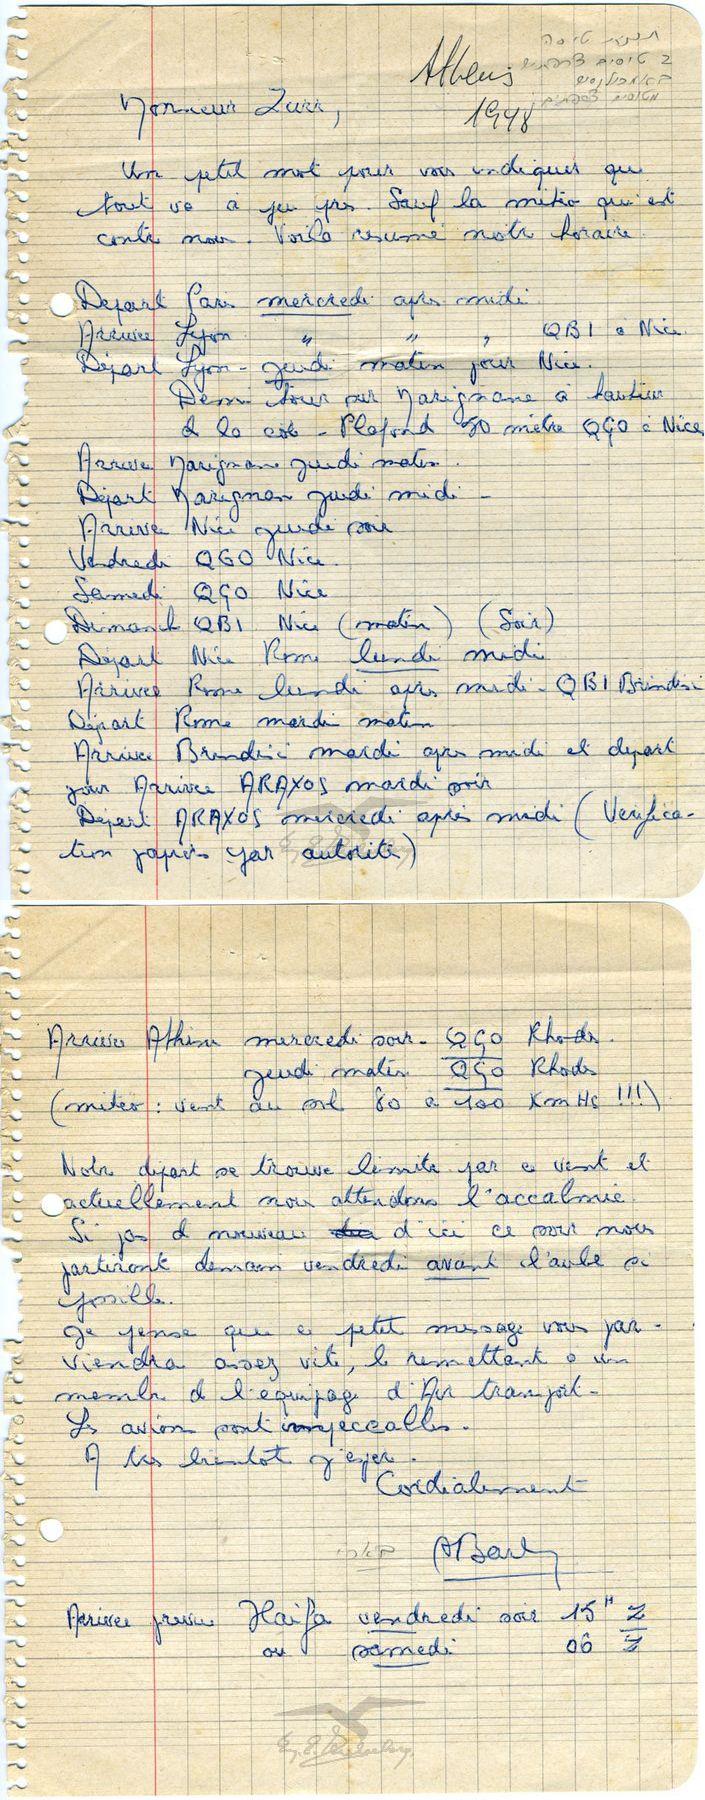 Athens
1948
תכנית טיסה
2 טיסים צרפתיים
Monsieur Zurr,
Un petit mot pour vous indiquer que
tout va a peu pres. Sauf la météo qui est
contre nous. Voila resumé notre horaire.
Depart Paris mercredi apres midi.
Arrivee Lyon " " " QBI à Nice.
Départ Lyon - jeudi matin pour Nice.
Demi tour sur Marignane à hauteur
d la cote - Plafond 50 metre QGO à Nice
Arrivee Marignane jeudi matin.
Départ Marignan jeudi midi -
Arrivee Nice jeudi soir
Vendredi QGO Nice.
Samedi QGO Nice
Dimanch QBI Nice (matin) (Soir)
Départ Nice Rome lundi midi
Arrivee Rome lundi apres midi - QBI Brindisi
Départ Rome mardi matin
Arrivee Brindisi mardi apres midi et depart
pour Arrivee ARAXOS mardi soir
Départ ARAXOS mercredi apres midi (Verifica-
tion papiers par autorité)
Arrivee Athene mercredi soir - QGO Rhodes.
jeudi matin QGO Rhodes
(météo : vent au sol 80 a 100 KmHs !!!)
Notre départ se trouve limité par ce vent et
actuellement nous attendons l'accalmie.
Si pas d nouveau d'ici ce soir nous
partiront demain vendredi avant l'aube si
possible.
Je pense que ce petit message vous par-
viendra assez vite, le remettant a un
membre d l'equipage d'Air transport -
Les avions sont impeccables.
A tres bientot j'espere.
Cordialement
בארי
ABarl
Arrivee prevue Haifa vendredi soir 15H Z
ou samedi 06 Z